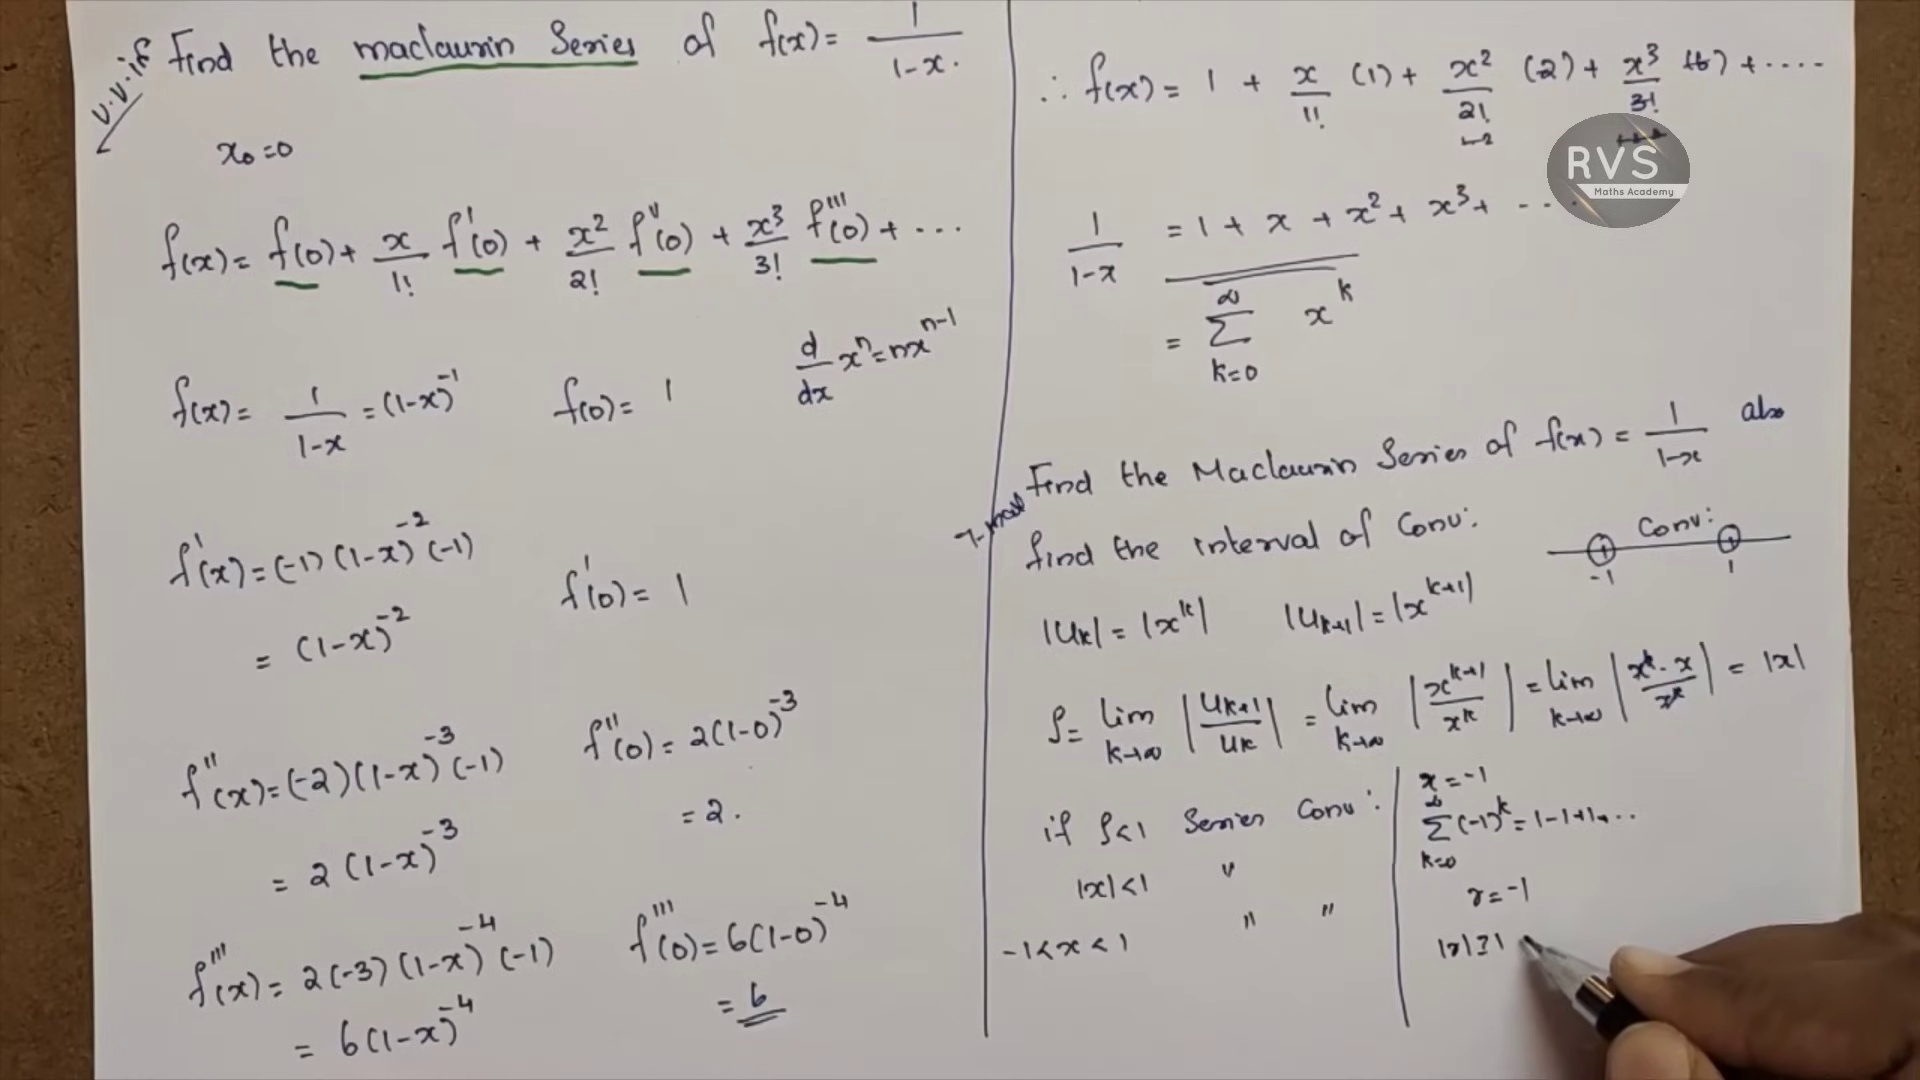 v.v.if
Find the maclaurin Series of f(x) = 1/(1-x).
x₀=0
f(x) = f(0) + x/1! f'(0) + x²/2! f''(0) + x³/3! f'''(0) + ...
d/dx xⁿ = nxⁿ⁻¹
f(x) = 1/(1-x) = (1-x)⁻¹ f(0) = 1
f'(x) = (-1)(1-x)⁻²(-1) f'(0) = 1
= (1-x)⁻²
f''(x) = (-2)(1-x)⁻³(-1) f''(0) = 2(1-0)⁻³
= 2(1-x)⁻³ = 2.
f'''(x) = 2(-3)(1-x)⁻⁴(-1) f'''(0) = 6(1-0)⁻⁴
= 6(1-x)⁻⁴ = 6
∴ f(x) = 1 + x/1! (1) + x²/2! (2) + x³/3! (6) + ....
RVS
Maths Academy
1/(1-x) = 1 + x + x² + x³ + ...
= ∑_{k=0}^{∞} x^k
Find the Maclaurin Series of f(x) = 1/(1-x) also
find the interval of Conv:
Conv:
-1 1
|U_k| = |x^k| |U_{k+1}| = |x^{k+1}|
ρ = lim_{k→∞} |U_{k+1}/U_k| = lim_{k→∞} |x^{k+1}/x^k| = lim_{k→∞} |x^k·x/x^k| = |x|
if ρ<1 Series Conv:
|x|<1 "
-1<x<1 " "
x = -1
∑_{k=0}^{∞} (-1)^k = 1-1+1...
r = -1
|r|≥1